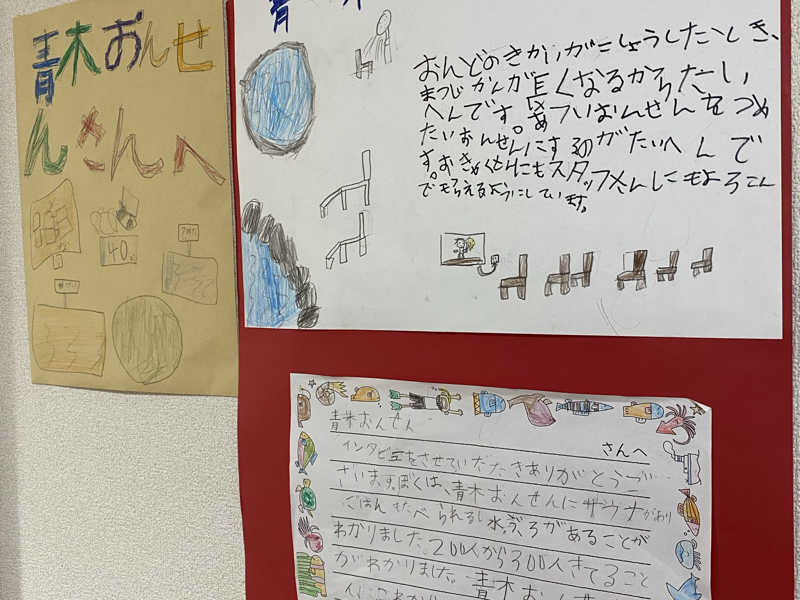 青木おんせ
んさんへ
40
おんどのきかいがこしょうしたとき、
まつじかんが長くなるからたい
へんです。あついおんせんをつめ
たいおんせんにするのがたいへんで
す。おきゃくさんにもスタッフさんにもよろこん
でもらえるようにしています。
青木おんせん
さんへ
インタビューをさせていただきありがとうご
ざいます。ぼくは、青木おんせんにサウナがあり
ごはんもたべられるし水ぶろがあることが
わかりました。200人から300人きてること
がわかりました。青木おん